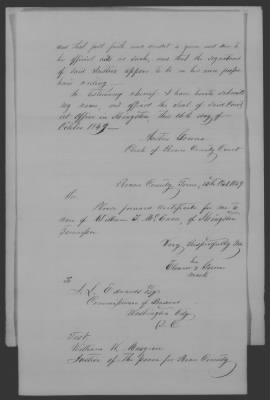 and that full faith and credit is given and due to
his official acts as such, and that the signature
of said Justice appears to be in his own proper
hand writing
In testimony whereof I have hereto subscribed
my name, and affixed the seal of said Court
at Office in Kingston this 16th day of
October 1849
Clerk of Roane County Court
Roane County, Tenn, 16th Oct 1849
Sir
Please forward certificate for me to
care of William S. McEwen, of Kingston
Tennessee
Very Respectfully
her
Eleanor X
mark
To
J. L. Edwards Esq
Commissioner of Pensions
Washington City
D. C.
Test
William K.
Justice of the peace for Roane County